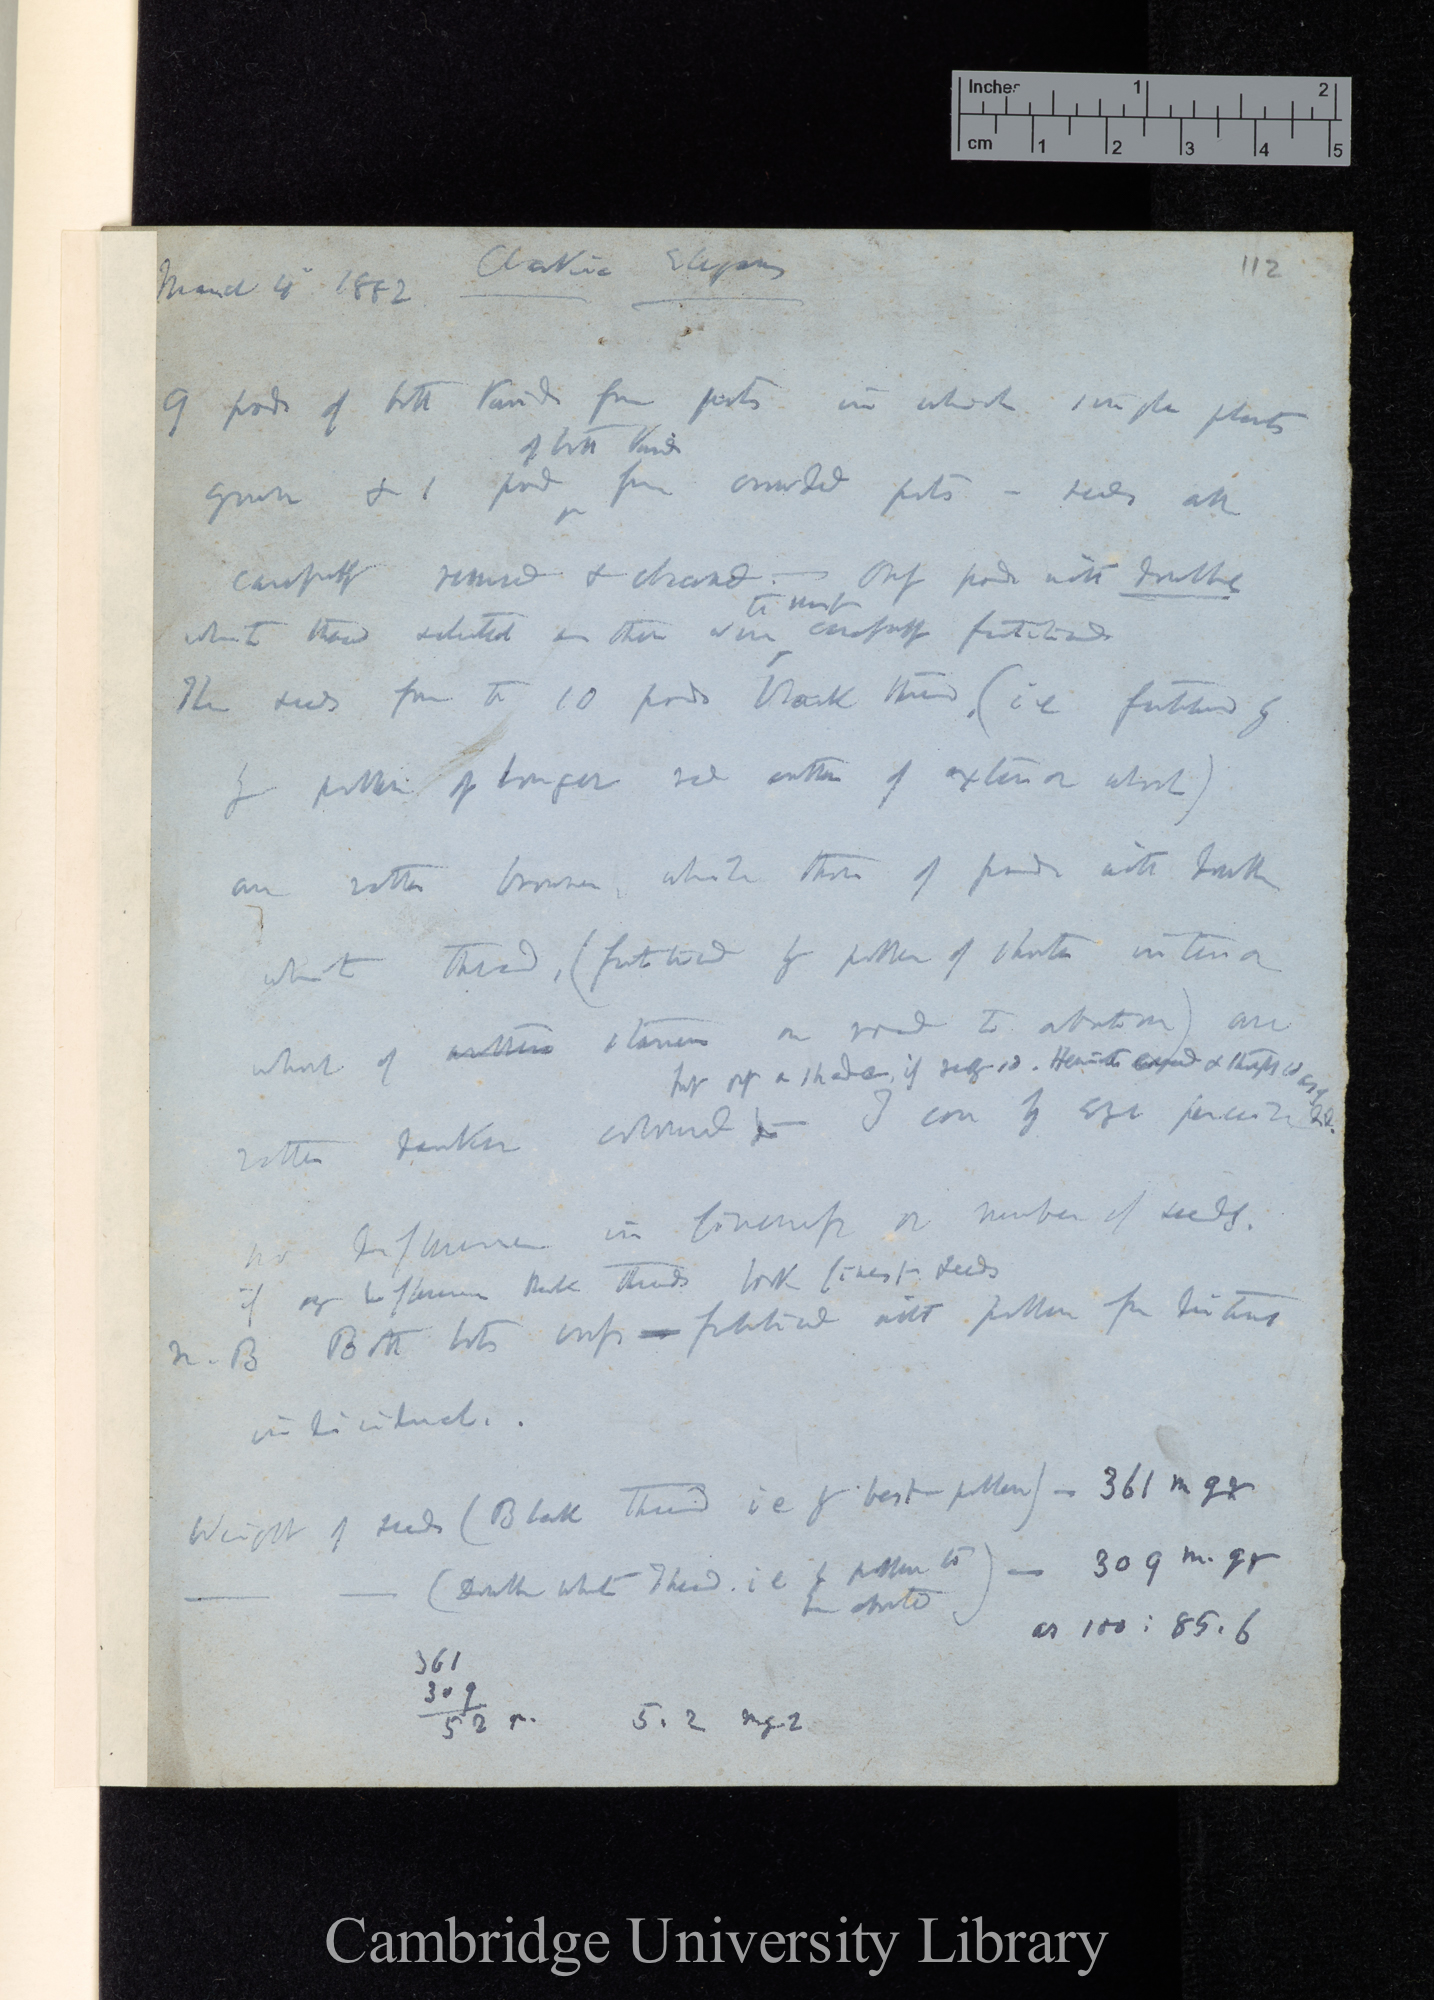 Inches 1 2
cm 1 2 3 4 5
112
March 4° 1882 Clarkia Elegans
9 pods of both kinds from pots in which single plants
of both kinds
grown & 1 pod from crowded pots – seeds all
carefully removed & cleaned. — Only pods with double
the most
white thread selected as these were carefully fertilised
The seeds from the 10 pods black thread, (i e fertilised by
by pollen of longer red anthers of exterior whorl)
are rather browner, while those of pods with double
white thread, (fertilised by pollen of shorter interior
whorl of anthers stamens on road to abortion) are
but only a shade, if really so. Henrietta &
rather darker coloured — I can by eye perceive
no difference in fineness or number of seeds.
if any difference black threads look finest seeds
N. B Both lots cross – fertilised with pollen from distinct
individual. .
Weight of seeds (Black Thread i e by best pollen) — 361 m gr
— — (Double white Thread. i e by pollen to be aborted) — 309 m. gr
as 100 : 85.6
361
309
52 m. 5.2 mgr
Cambridge University Library